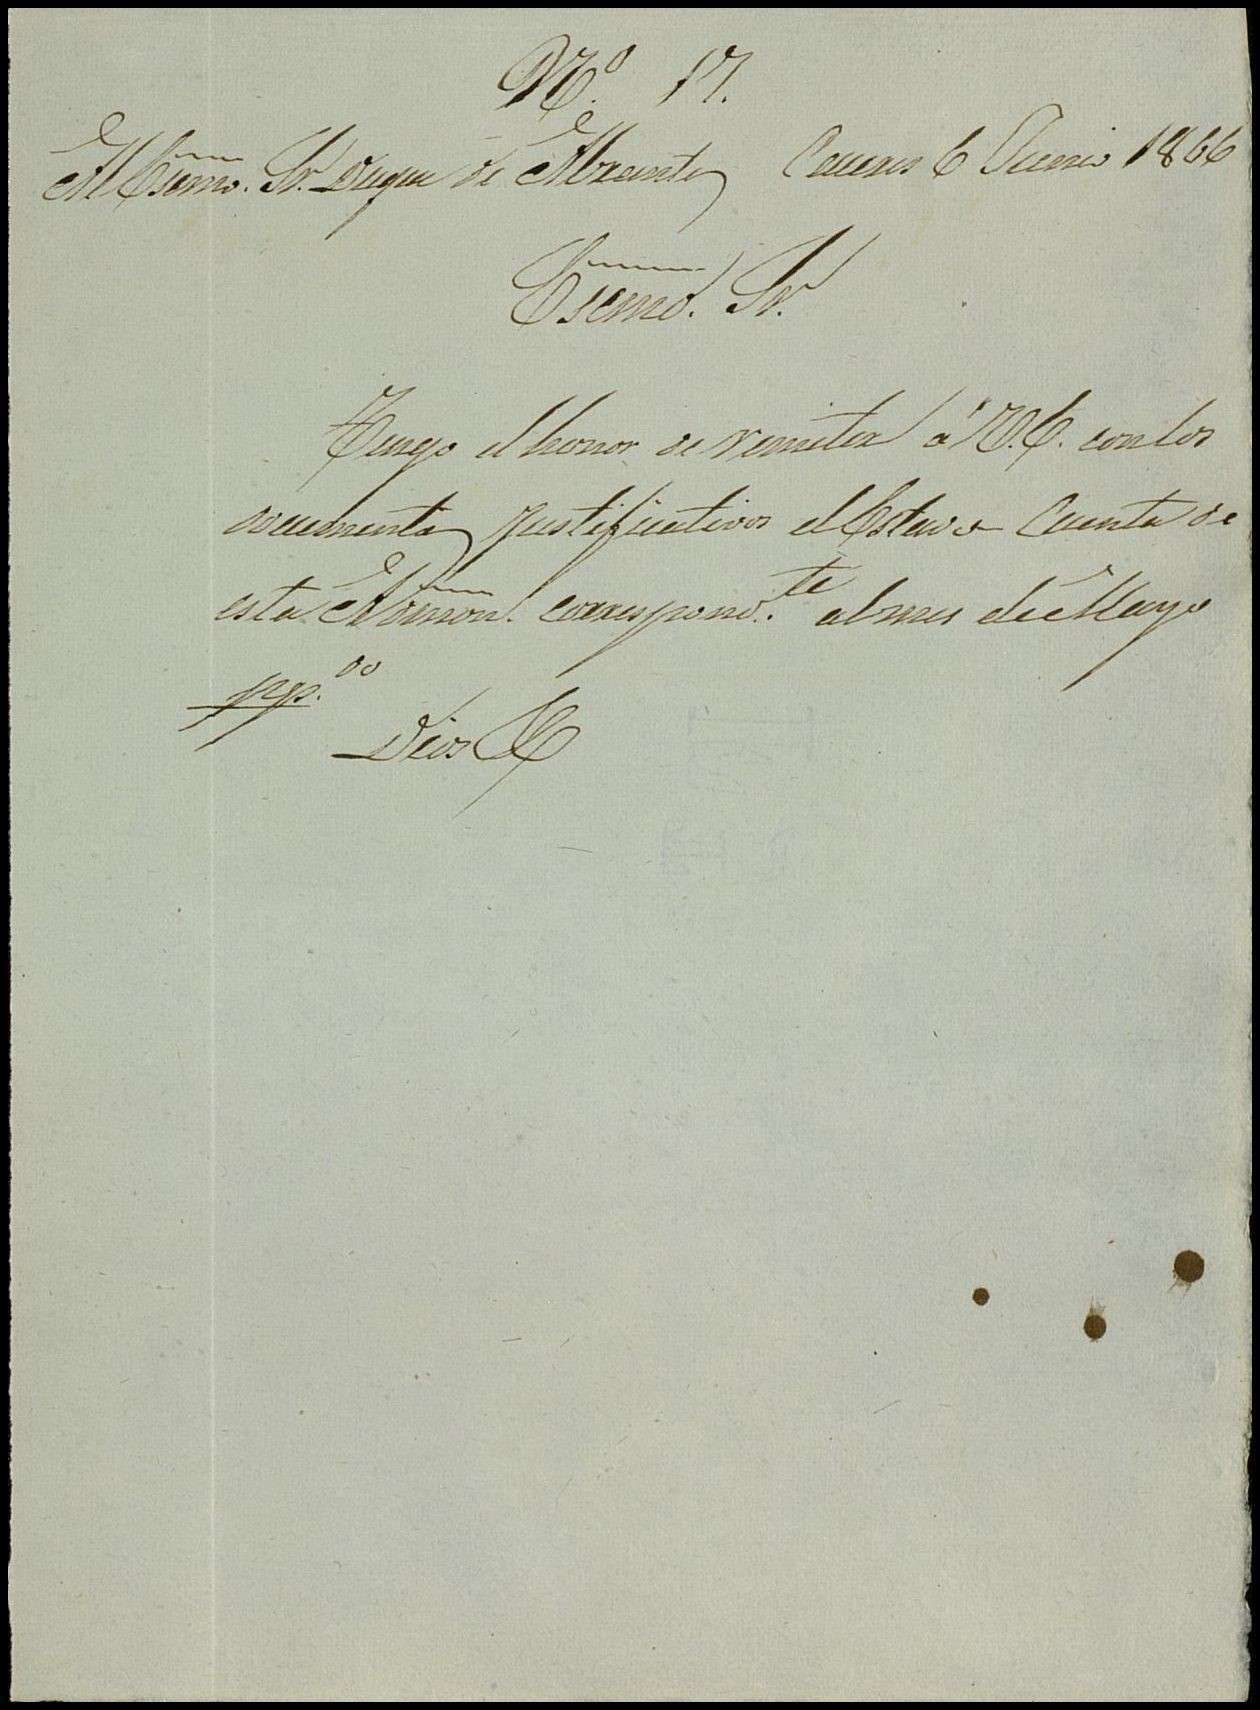 Nº. 17.
Al Escmo. Sr. Duque de Abrantes Caceres 6 Junio 1866
Escmo. Sr.
Tengo el honor de remitir á V.E. con los
documentos justificativos el Estado Cuenta de
esta Admon. correspond.te al mes de Mayo
pp.do
Dios &